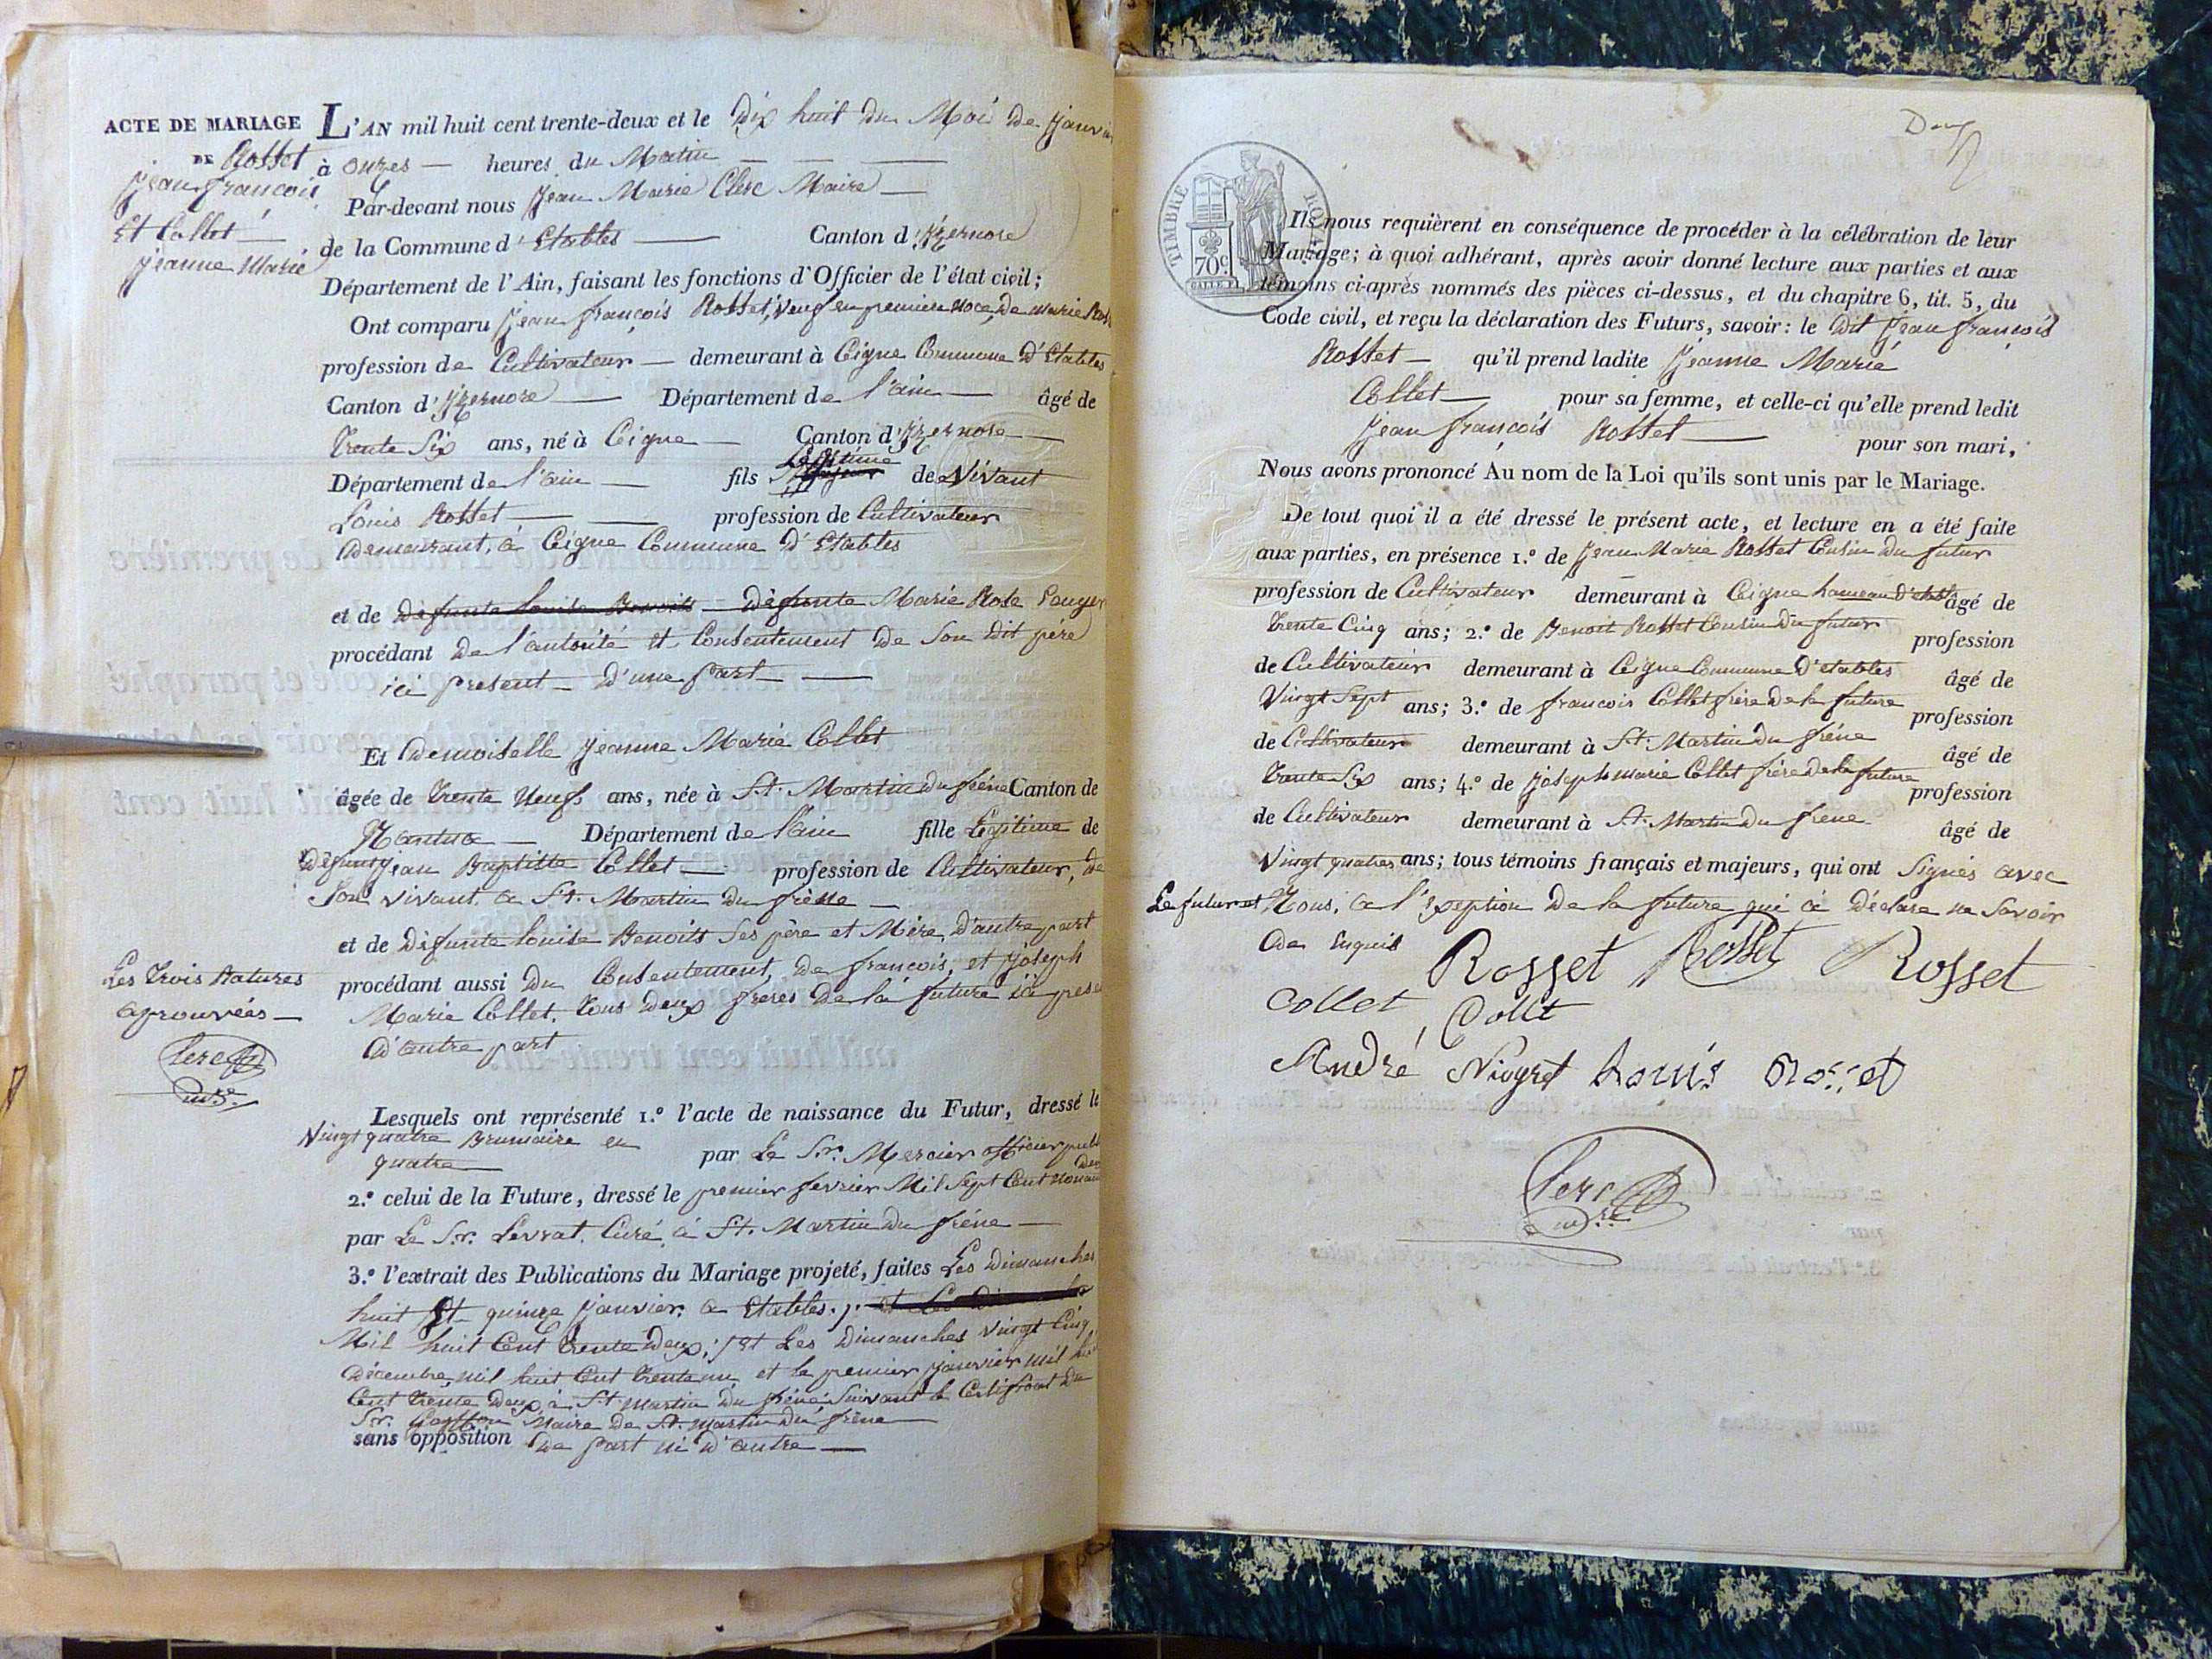 ACTE DE MARIAGE
DE Rosset
Jean françois
Et Collet
Jeanne Marie
L'AN mil huit cent trente-deux et le Dix huit Du Mois De Janvier
à onzes — heures du Matin
Par-devant nous Jean Marie Clerc Maire
de la Commune d'Etables Canton d'Yzernore
Département de l'Ain, faisant les fonctions d'Officier de l'état civil ;
Ont comparu Jean françois Rosset, Veuf en premiere noce, De Marie
profession de Cultivateur — demeurant à Ceigne Commune D'Etables
Canton d'Yzernore — Département de l'ain — âgé de
Trente Six ans, né à Ceigne — Canton d'Yzernore
Légitime
Département de l'ain — fils de Vivant
Louis Rosset — profession de Cultivateur
Demeurant, à Ceigne Commune D'Etables
et de Défunte Louise Benoits Défunte Marie Rose
procédant De l'autorité et Consentement De Son Dit père
ici présent — D'une part
Et Demoiselle Jeanne Marie Collet
âgée de Trente Neufs ans, née à St. Martin Du frêne Canton de
Nantua — Département de l'ain fille Légitime de
Défunt Jean Baptiste Collet — profession de Cultivateur, De
Son vivant, à St. Martin Du frêne
et de Défunte Louise Benoits Ses père et Mère, D'autre part
procédant aussi Du Consentement, De françois, et Joseph
Marie Collet. Tous Deux freres De la future ici
D'autre part
Les Trois Ratures
aprouvées —
Clerc
Lesquels ont représenté 1.º l'acte de naissance du Futur, dressé le
Vingt quatre Brumaire en
quatre — par Le Sr. Mercier officier
2.º celui de la Future, dressé le premier fevrier Mil Sept Cent
par Le Sr. Levrat. Curé, à St. Martin Du frêne —
3.º l'extrait des Publications du Mariage projeté, faites Les Dimanches
huit Et quinze Janvier. à Etables.
Mil huit Cent Trente Deux ; Et Les Dimanches Vingt Cinq
Décembre, mil huit Cent Trente un, et le premier Janvier mil
Cent Trente Deux, à St. Martin Du frêne Suivant le Certificat Du
Sr. Maire De St. Martin Du frêne
sans opposition De part ni D'autre —
Deux
TIMBRE ROYAL
70c.
Ils nous requièrent en conséquence de procéder à la célébration de leur
Mariage ; à quoi adhérant, après avoir donné lecture aux parties et aux
témoins ci-après nommés des pièces ci-dessus, et du chapitre 6, tit. 5, du
Code civil, et reçu la déclaration des Futurs, savoir : le Dit Jean françois
Rosset — qu'il prend ladite Jeanne Marie
Collet — pour sa femme, et celle-ci qu'elle prend ledit
Jean françois Rosset — pour son mari,
Nous avons prononcé Au nom de la Loi qu'ils sont unis par le Mariage.
De tout quoi il a été dressé le présent acte, et lecture en a été faite
aux parties, en présence 1.º de Jean Marie Rosset Cousin Du futur
profession de Cultivateur demeurant à Ceigne hameau D'etables âgé de
Trente Cinq ans ; 2.º de Benoit Rosset Cousin Du futur profession
de Cultivateur demeurant à Ceigne Commune D'etables âgé de
Vingt Sept ans ; 3.º de francois Collet frère De la future profession
de Cultivateur demeurant à St. Martin Du frêne âgé de
Trente Six ans ; 4.º de Joseph marie Collet frère De la future profession
de Cultivateur demeurant à St. Martin Du frene âgé de
Vingt quatres ans ; tous témoins français et majeurs, qui ont Signés avec
Le futur et Nous, à l'exeption De la future qui à Déclare ne Savoir
De Enquis Rosset Rosset Rosset
Collet Collet
André Niogret Louis Rosset
Clerc